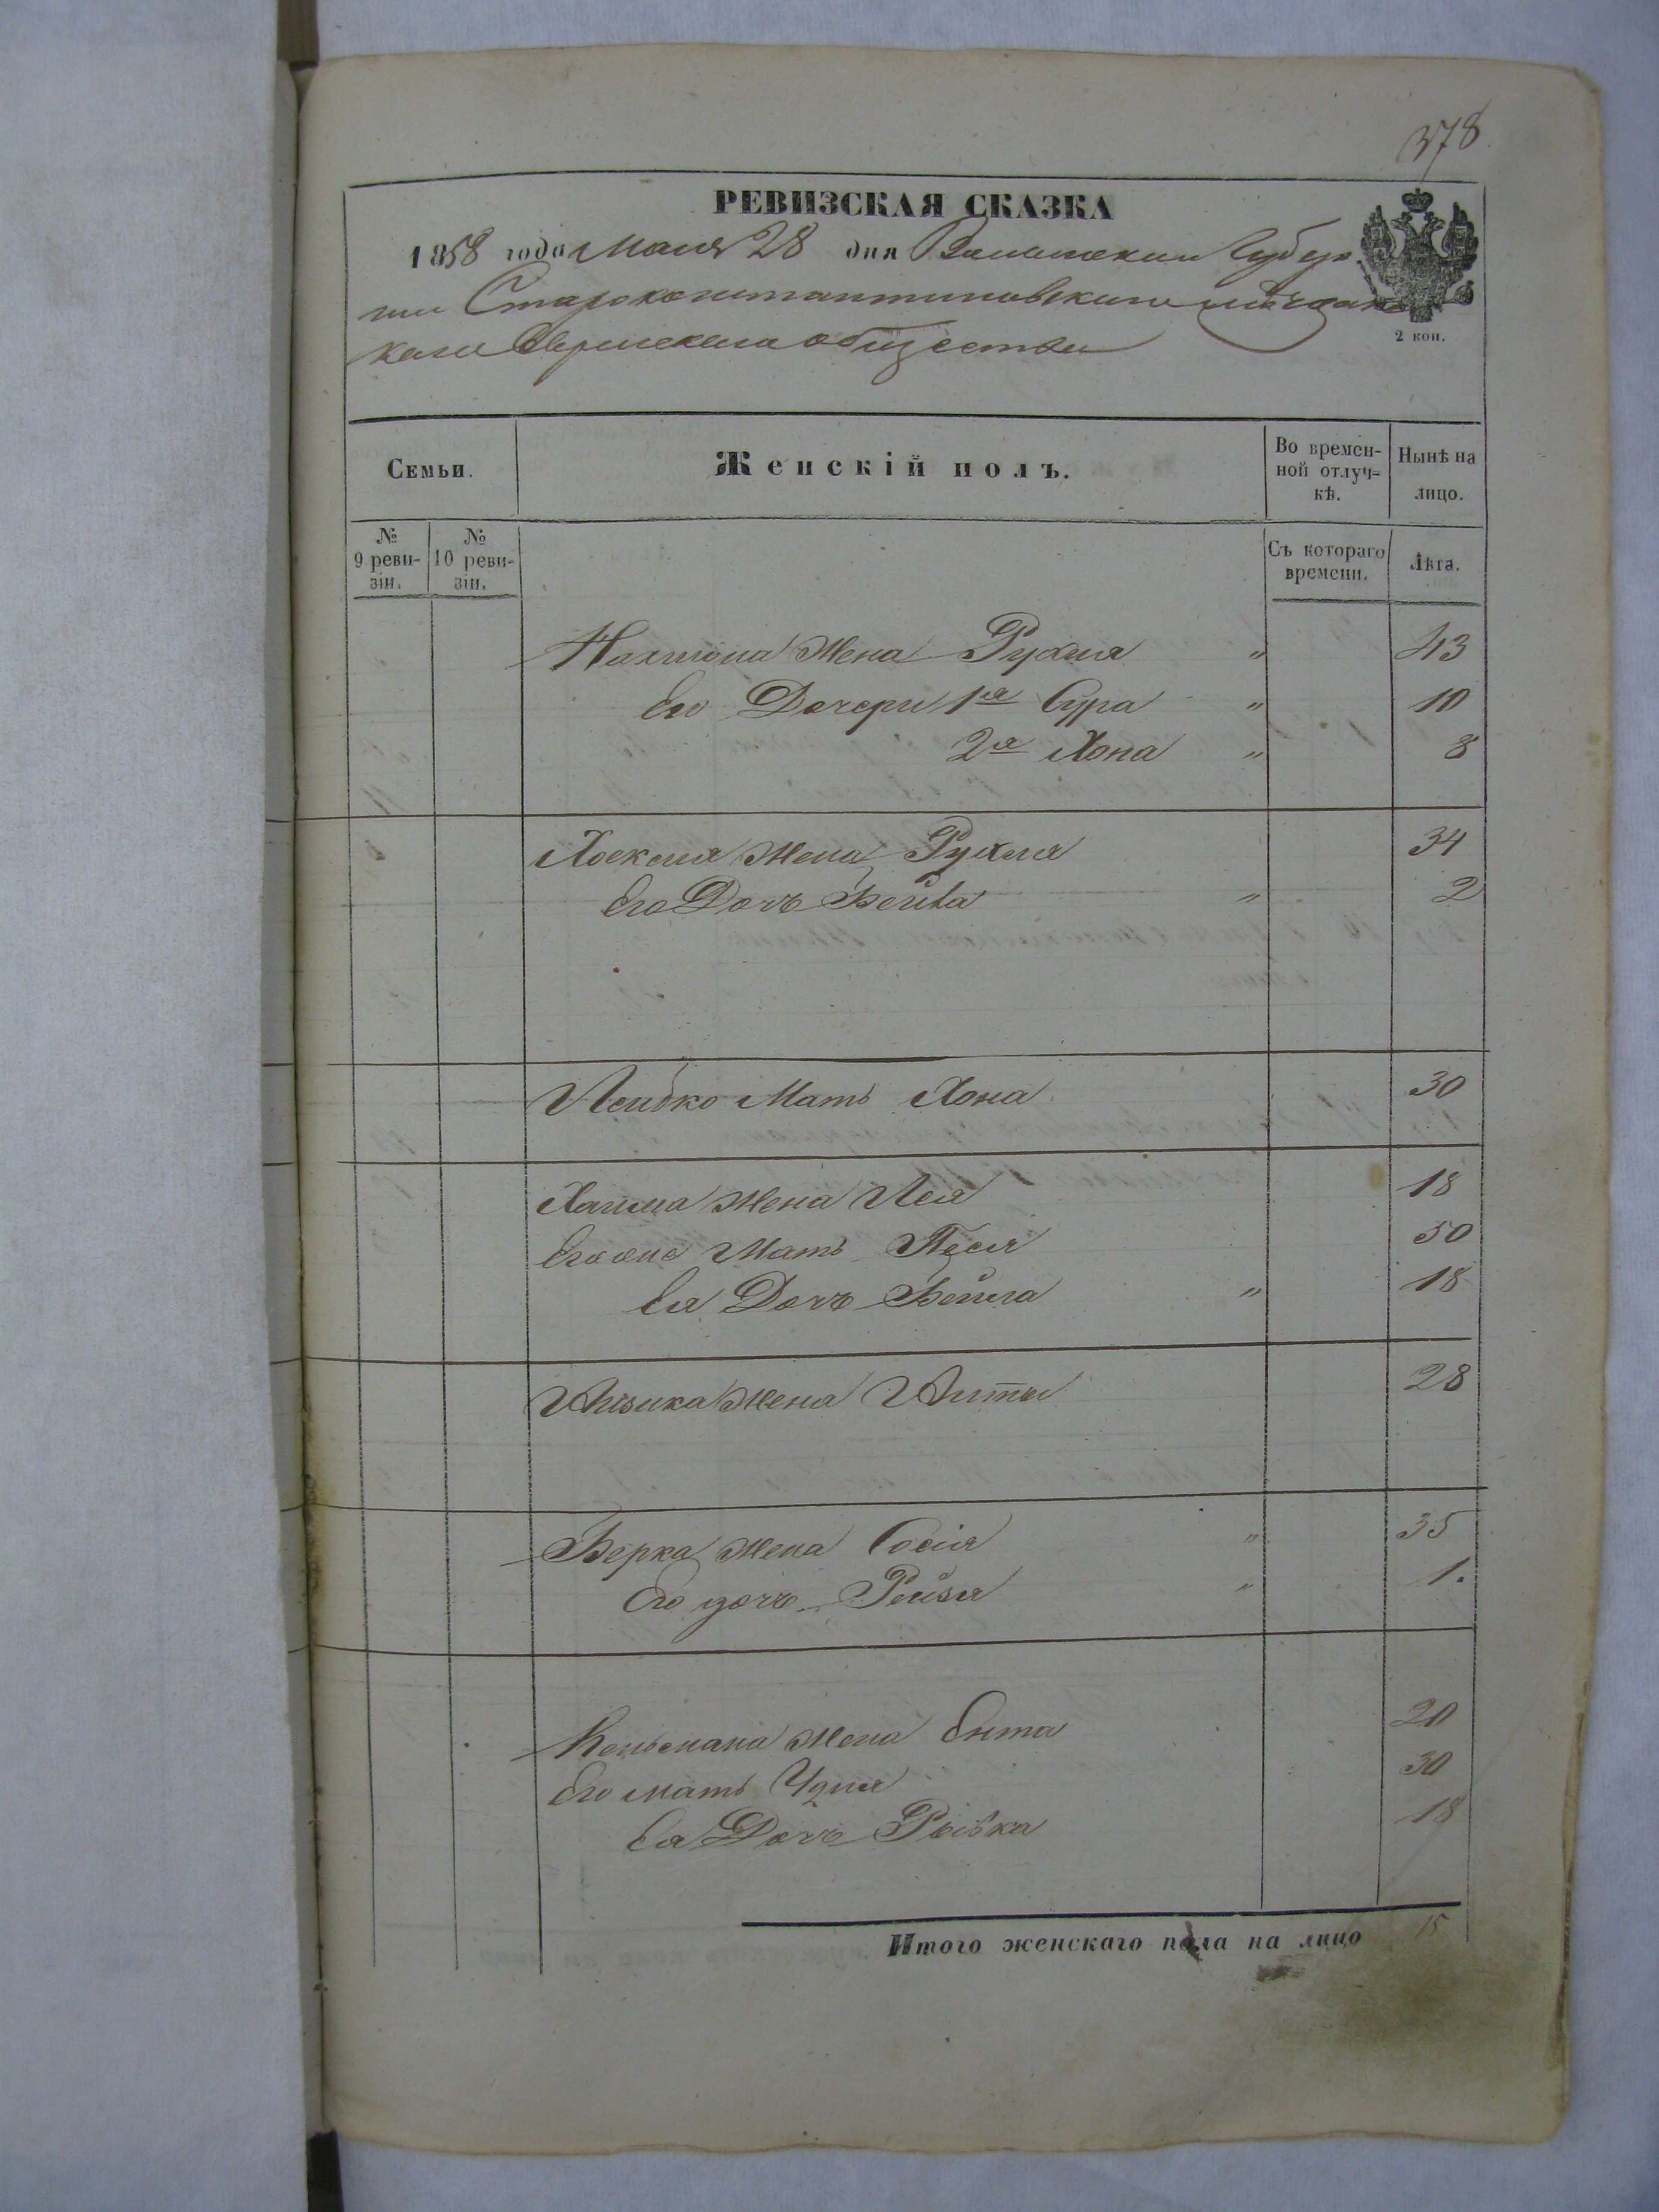 378
РЕВИЗСКАЯ СКАЗКА
1858 года Мая 28 дня Волынской Губер
нии Староконстантиновскаго мѣщанс
каго Еврейскаго общества
2 коп.
Семьи.
Женскій полъ.
Во времен-
ной отлуч-
кѣ.
Нынѣ на
лицо.
№
9 реви-
зіи.
№
10 реви-
зіи.
Съ котораго
времени.
Лѣта.
Нахмона Жена Рухля " 43
Его Дочери 1я Сура " 10
2я Хона " 8
Жена Рухля 34
Его Дочь Бейла " 2
Лейбко Мать Хона 30
Хаима Жена Лея 18
Мать Песя 50
Ея Дочь Бейла " 18
Ицика Жена 28
Берка Жена Сося " 35
Его дочь Рейзя " 1.
Кельмана Жена Ента 20
Его мать Удля 30
Ея Дочь Ривка 18
Итого женскаго пола на лицо 15